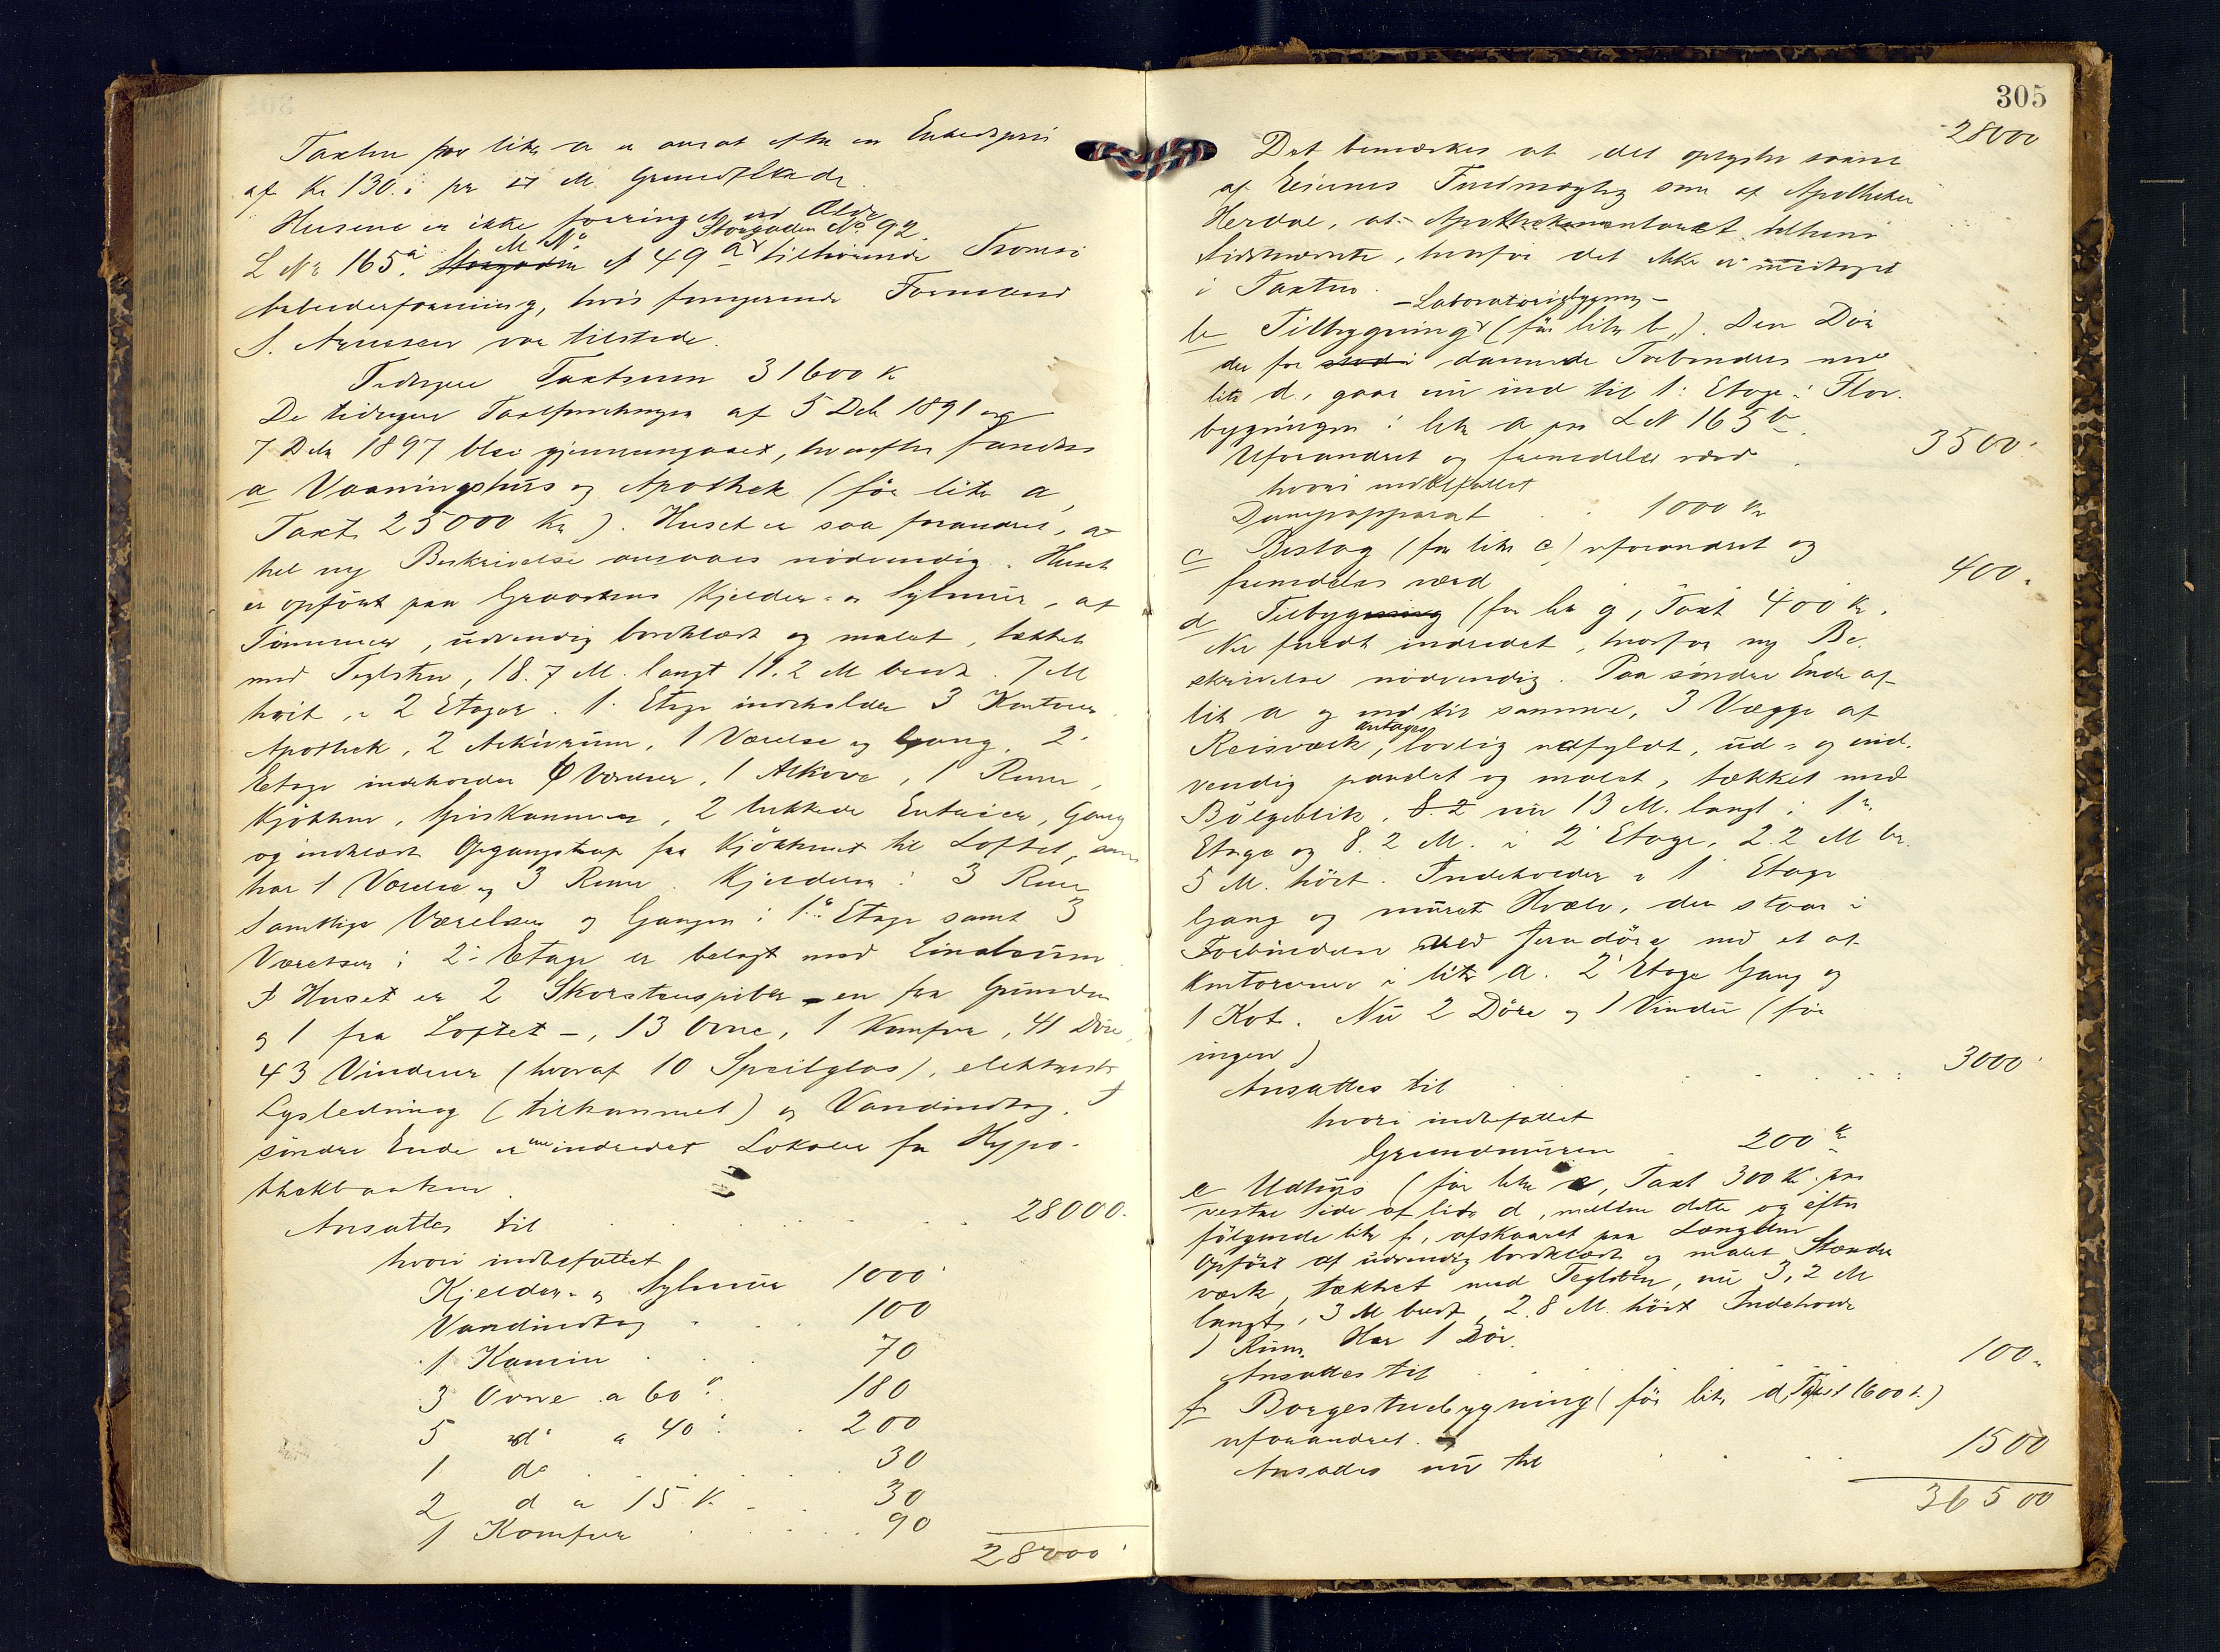 Taxten for litr a er ansat efter en Enhedspris
af Kr 130. pr M. Grundflade
Husene er ikke forringet ved Ælde
L Nr 165a. M. No. Storgaden No 92. af 49 a tilhørende Tromsö
Arbeiderforening, hvis fungerende Formand
S. Arnesen var tilstede.
Tidligere Taxtsum 31600 K
De tidligere Taxtforretninger af 5 Deb 1891 og
7 Deb 1897 blev gjennemgaaet, hvorefter fandtes
a Vaaningshus og Apothek (før litr a,
Taxt 25000 Kr). Huset er saa forandret, at
hel ny Beskrivelse ansaaes nödvendig. Huset
er opfört paa Graastens Kjelder- og Sylmur, af
Tömmer, udvendig bordklædt og malet, tækket
med Teglsten, 18.7 M. langt 11.2 M bredt. 7 M
höit, i 2 Etager. 1. Etage indeholder 3 Kontorer
Apothek, 2 Arkivrum, 1 Værelse og Gang. 2.
Etage indeholder 6 Værelser, 1 Alkove, 1 Rum,
Kjökken, Spiskammer, 2 lukkede Entréer, Gang
og indklædt Opgangstrap fra Kjökkenet til Loftet, som
har 1 Værelse og 3 Rum. Kjelderen: 3 Rum
Samtlige Værelser og Gangen i 1ste Etage samt 3
Værelser i 2. Etage er belagt med Linoleum
I Huset er 2 Skorstenspiber - en fra Grunden
og 1 fra Loftet -, 13 Ovne, 1 Komfur, 41 Döre,
43 Vinduer (hvoraf 10 Speilglas), elektrisk
Lysledning (tilkommet) og Vandindtag. I
söndre Ende er indredet Lokaler for Hypo-
thekbanken.
Ansattes til 28000.
hvori indbefattet
Kjelder- og Sylmur 1000
Vandindtag 100
1 Kamin 70
3 Ovne a 60 180
5 do a 40 200
1 do 30
2 d a 15 K. 30
1 Komfur 90
28000
305
28000
Det bemærkes at det oplystes saavel
af Eiernes Fuldmægtig som af Apotheker
Herdal, at Apothekerinventaret tilhører
Sidstnævnte, hvorfor det ikke er medtaget
i Taxten.
- Laboratoribygning -
b Tilbygning (før litr b,). Den Dör
der før dannede Forbindelse med
litr d, gaar nu ind til 1: Etage i Flor.
bygningen i litr a paa L N 165 b.
Uforandret og fremdeles værd 3500
hvori indbefattet
Dampapparat 1000 Kr
c Bislag (før litr c) uforandret og
fremdeles værd 400
d Tilbygning (før litr g, Taxt 400 Kr.
Nu indredet, hvorfor ny Be-
skrivelse nödvendig. Paa söndre Ende af
litr a og ind til samme, 3 Vægge af
Reisværk, antages lovlig udfyldt, ud- og ind-
vendig panelet og malet, tækket med
Bölgeblik. 8.2 nu 13 M. langt i 1.
Etage og 8.2 M. i 2 Etage. 2.2 M br.
5 M. höit. Indeholder i 1 Etage
Gang og muret Hvælv, der staar i
Forbindelse ved Jerndöre med et af
Kontorerne i litr a. 2 Etage Gang og
1 Kot. Nu 2 Döre og 1 Vindu (før
ingen)
Ansattes til 3000
hvori indbefattet
Grundmuren 200 Kr
e Udhus (før litr e, Taxt 300 K. paa
vestre Side af litr d, mellem dette og efter
fölgende litr f, afskaaret paa Længden
Opfört af udvendig bordklædt og malet Stænder
værk, tækket med Teglsten, nu 3,2 M
langt, 3 M bredt, 2.8 M. höit Indeholder
1 Rum. Har 1 Dör.
Ansattes til 100
f Borgestuebygning (før litr d, Taxt 1600 K.)
uforandret.
Ansattes nu til 1500
36500